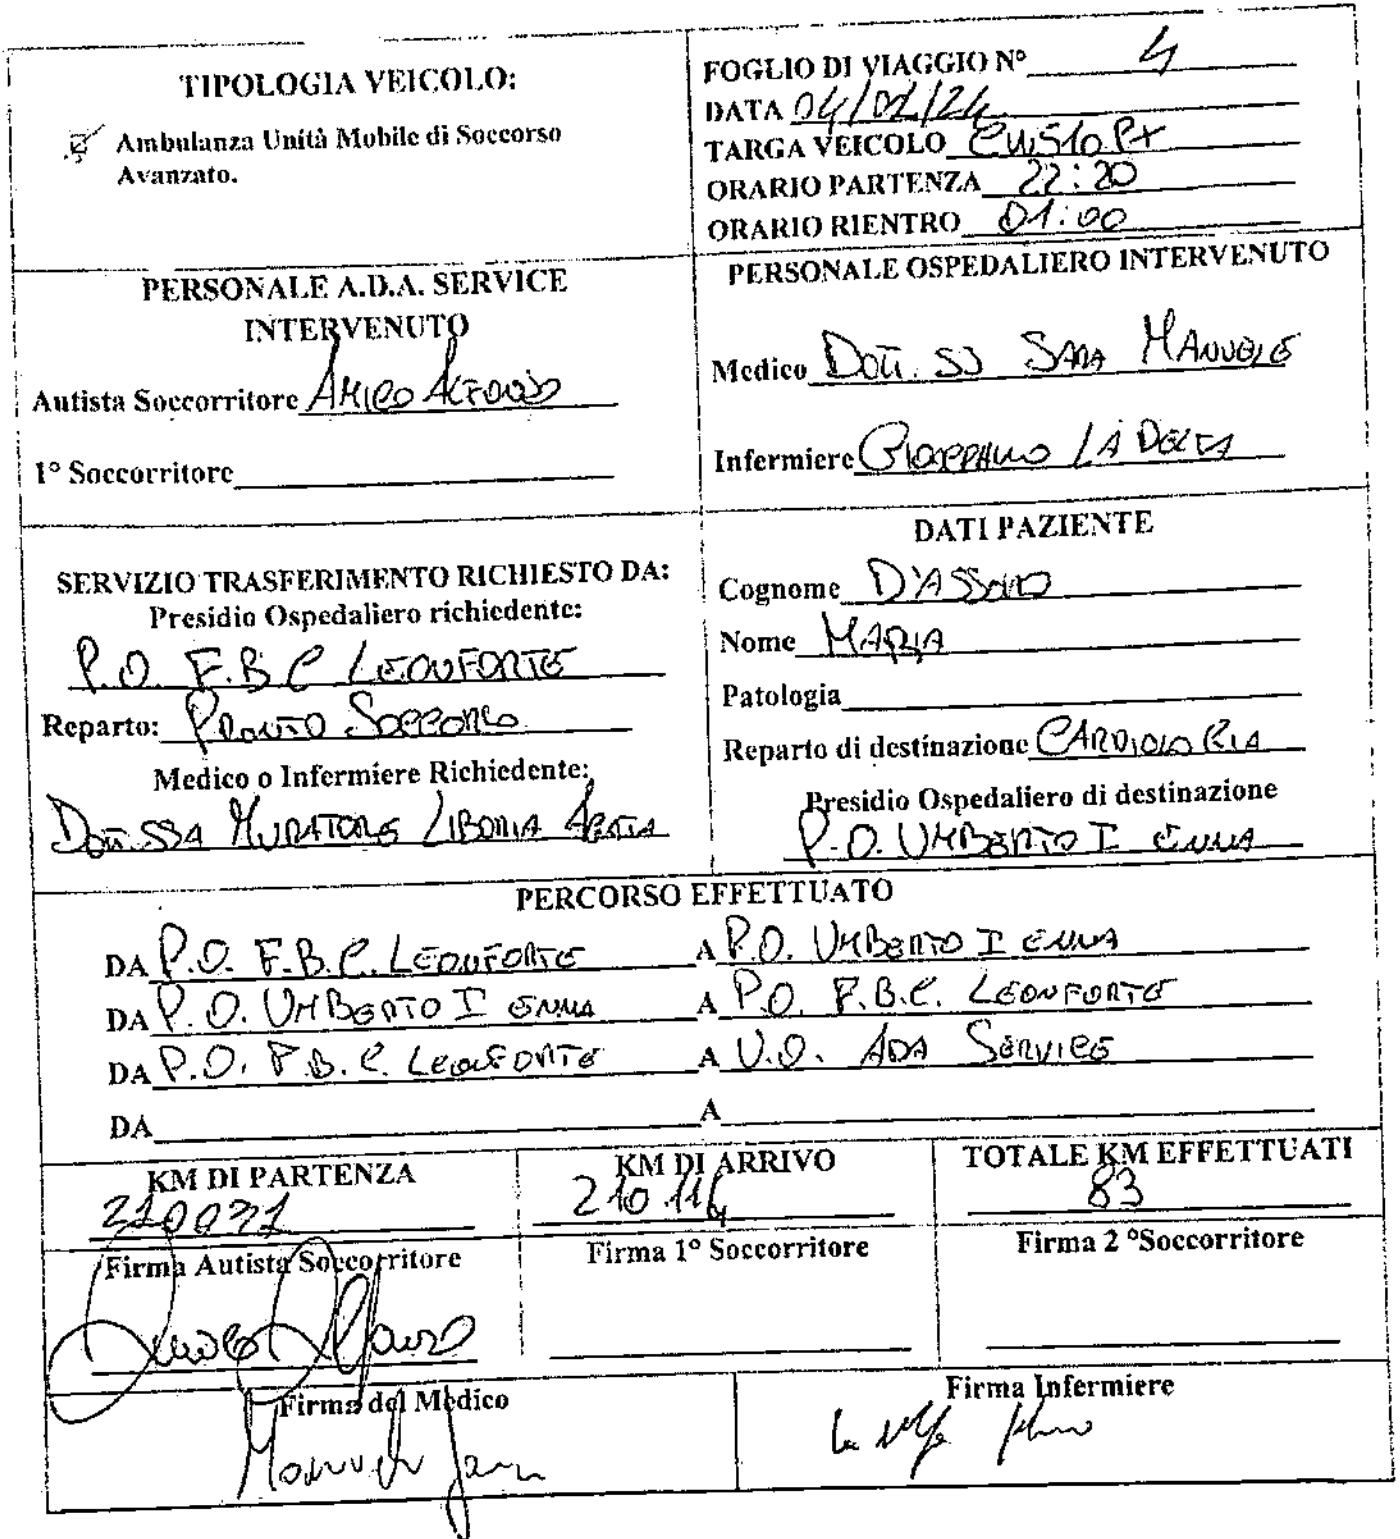 TIPOLOGIA VEICOLO:
Ambulanza Unità Mobile di Soccorso
Avanzato.
FOGLIO DI VIAGGIO N° 4
DATA 04/02/24
TARGA VEICOLO
ORARIO PARTENZA 22:20
ORARIO RIENTRO 01:00
PERSONALE A.D.A. SERVICE
INTERVENUTO
Autista Soccorritore AMICO ALFONSO
1° Soccorritore
PERSONALE OSPEDALIERO INTERVENUTO
Medico DOTT.SS SARA MANUELE
Infermiere LA DELFA
SERVIZIO TRASFERIMENTO RICHIESTO DA:
Presidio Ospedaliero richiedente:
P.O. F.B.C LEONFORTE
Reparto: PRONTO SOCCORSO
Medico o Infermiere Richiedente:
DOTT.SSA MURATORE LIBORIA AGATA
DATI PAZIENTE
Cognome D'ASSORO
Nome MARIA
Patologia
Reparto di destinazione CARDIOLOGIA
Presidio Ospedaliero di destinazione
P.O. UMBERTO I ENNA
PERCORSO EFFETTUATO
DA P.O. F.B.C. LEONFORTE A P.O. UMBERTO I ENNA
DA P.O. UMBERTO I ENNA A P.O. F.B.C. LEONFORTE
DA P.O. F.B.C. LEONFORTE A U.O. ADA SERVICE
DA A
KM DI PARTENZA
210031
KM DI ARRIVO
210.114
TOTALE KM EFFETTUATI
83
Firma Autista Soccorritore
Amico Alfonso
Firma 1° Soccorritore
Firma 2 °Soccorritore
Firma del Medico
Manuele Sara
Firma Infermiere